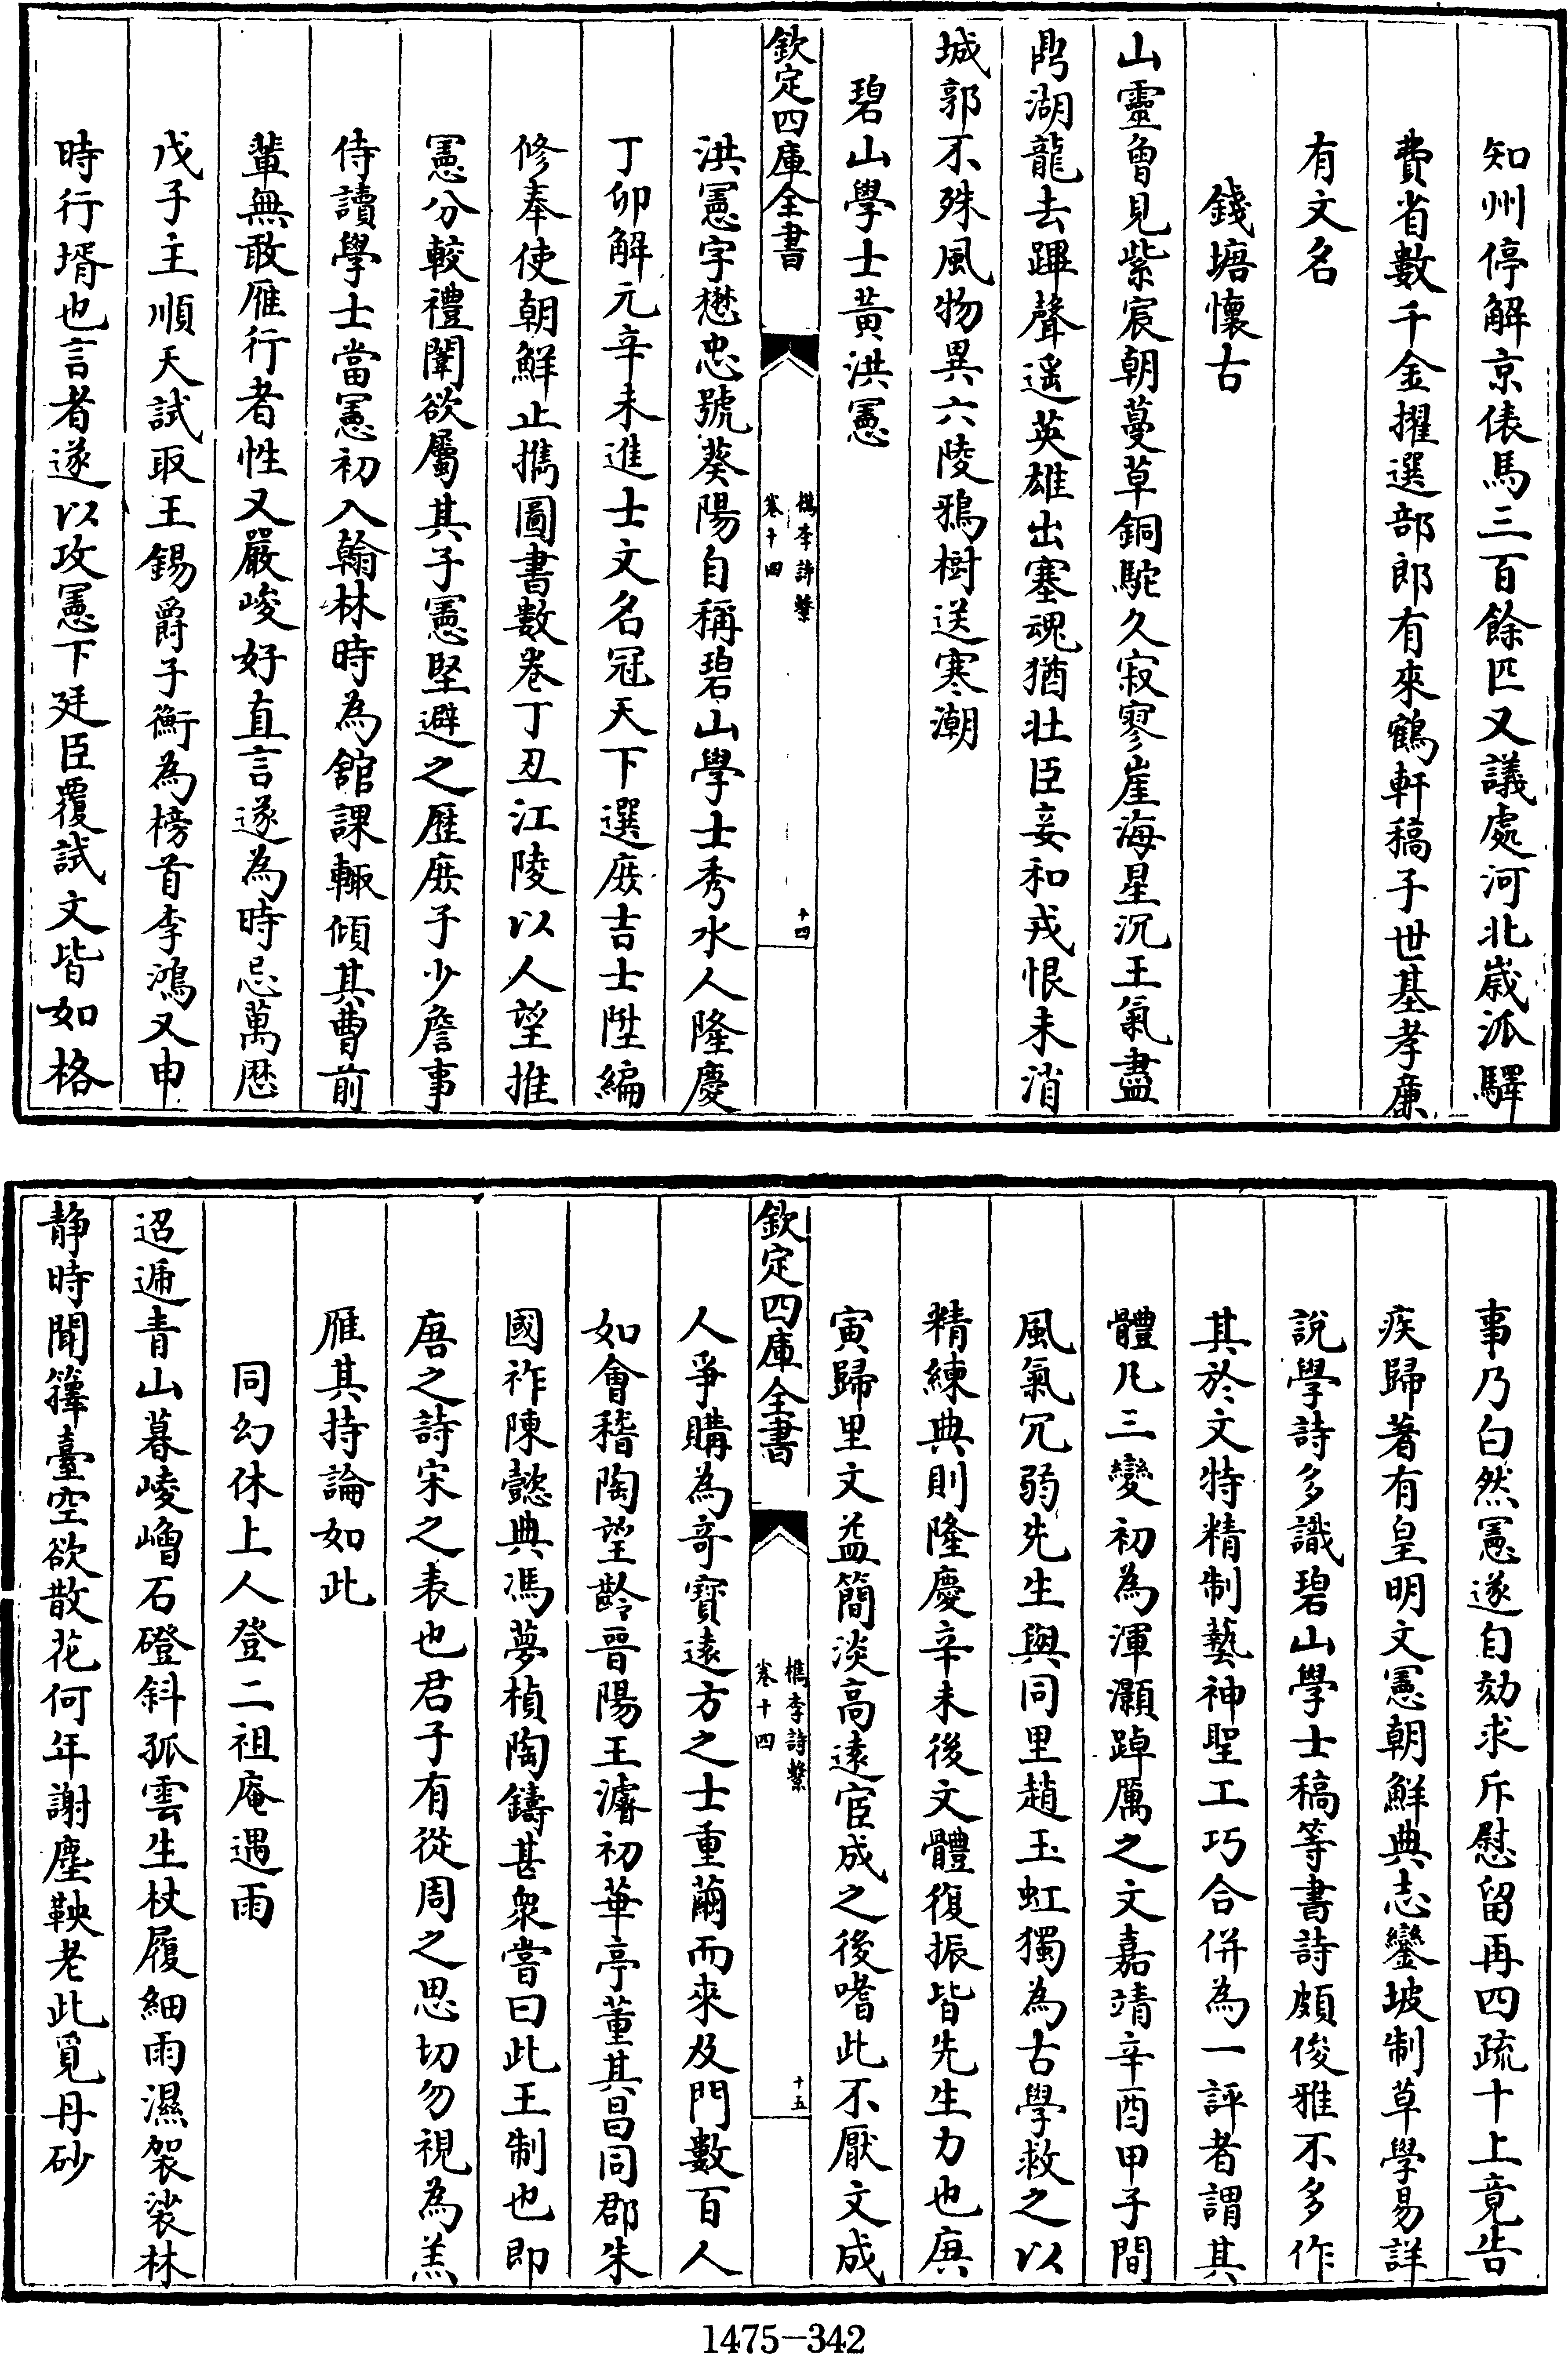 知州停解京俵馬三百餘匹又議處河北歲派驛
費省數千金擢選部郎有來鶴軒稿子世基孝廉
有文名
錢塘懷古
山靈曾見紫宸朝蔓草銅駝久寂寥崖海星沉王氣盡
鼎湖龍去蹕聲遥英雄出塞魂猶壯臣妾和戎恨未消
城郭不殊風物異六陵鴉樹送寒潮
碧山學士黃洪憲
欽定四庫全書
檇李詩繫
卷十四
十四
洪憲字懋忠號葵陽自稱碧山學士秀水人隆慶
丁卯解元辛未進士文名冠天下選庶吉士陞編
修奉使朝鮮止攜圖書數卷丁丑江陵以人望推
憲分較禮闈欲屬其子憲堅避之歷庶子少詹事
侍讀學士當憲初入翰林時為舘課輙傾其曹前
輩無敢雁行者性又嚴峻好直言遂為時忌萬歴
戊子主順天試取王錫爵子衡為榜首李鴻又申
時行壻也言者遂以攻憲下廷臣覆試文皆如格
事乃白然憲遂自劾求斥慰留再四疏十上竟告
疾歸著有皇明文憲朝鮮典志鑾坡制草學易詳
說學詩多識碧山學士稿等書詩頗俊雅不多作
其於文特精制藝神聖工巧合併為一評者謂其
體凡三變初為渾灝踔厲之文嘉靖辛酉甲子間
風氣冗弱先生與同里趙玉虹獨為古學救之以
精練典則隆慶辛未後文體復振皆先生力也庚
寅歸里文益簡淡高遠宦成之後嗜此不厭文成
欽定四庫全書
檇李詩繫
卷十四
十五
人爭購為奇寶遠方之士重繭而來及門數百人
如會稽陶望齡晋陽王濬初華亭董其昌同郡朱
國祚陳懿典馮夢楨陶鑄甚衆嘗曰此王制也即
唐之詩宋之表也君子有從周之思切勿視為羔
雁其持論如此
同幻休上人登二祖庵遇雨
迢遞青山暮崚嶒石磴斜孤雲生杖履細雨濕袈裟林
静時聞籜臺空欲散花何年謝塵鞅老此覓丹砂
1475-342